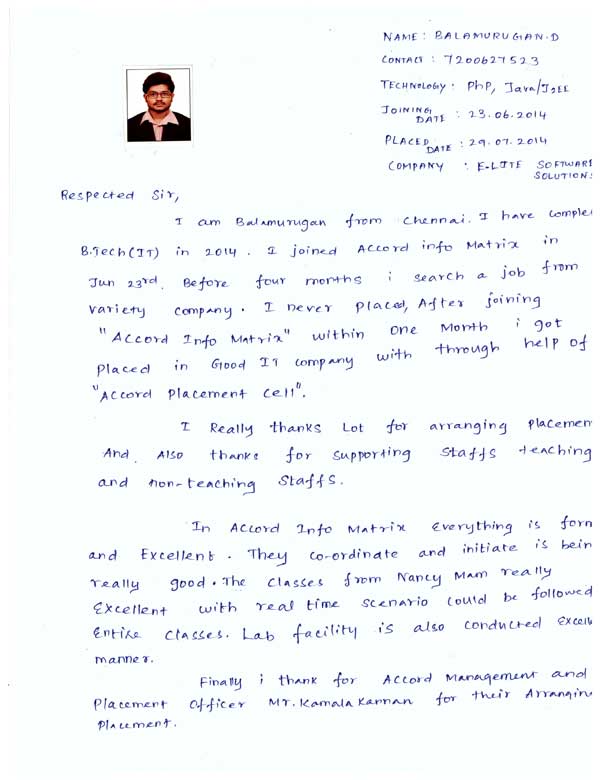 NAME: BALAMURUGAN.D
CONTACT : 7200627523
TECHNOLOGY: PhP, Java/J2EE
JOINING DATE : 23.06.2014
PLACED DATE : 29.07.2014
COMPANY : E-LITE SOFTWARE SOLUTIONS
Respected Sir,
I am Balamurugan from Chennai. I have comple
B.Tech(IT) in 2014. I joined Accord info Matrix in
Jun 23rd. Before four months i search a job from
variety company. I never placed, After joining
"Accord Info Matrix" within one Month i got
placed in Good IT company with through help of
"Accord Placement Cell".
I Really thanks Lot for arranging placemen
And Also thanks for supporting Staffs teaching
and non-teaching Staffs.
In Accord Info Matrix everything is form
and Excellent. They co-ordinate and initiate is bein
really good. The classes from Nancy Mam really
Excellent with real time scenario could be followed
Entire classes. Lab facility is also conducted Excell
manner.
Finally i thank for Accord Management and
Placement Officer Mr. Kamala Kannan for their Arrangin
Placement.